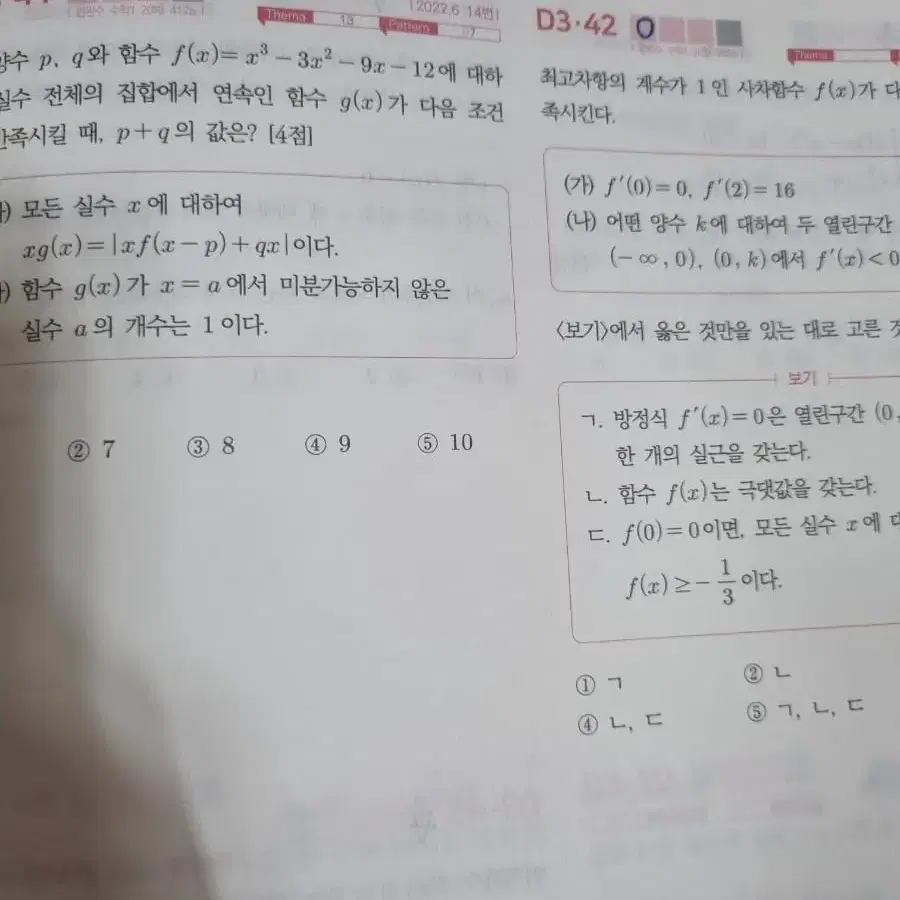 [2022.6 14번]
Thema 13 Pattern 7
p, q와 함수 f(x)=x³-3x²-9x-12에 대하
실수 전체의 집합에서 연속인 함수 g(x)가 다음 조건
만족시킬 때, p+q의 값은? [4점]
모든 실수 x에 대하여
xg(x)=|xf(x-p)+qx|이다.
함수 g(x)가 x=a에서 미분가능하지 않은
실수 a의 개수는 1이다.
② 7 ③ 8 ④ 9 ⑤ 10
D3·42 O
Thema
최고차항의 계수가 1인 사차함수 f(x)가 다
족시킨다.
(가) f'(0)=0, f'(2)=16
(나) 어떤 양수 k에 대하여 두 열린구간
(-∞, 0), (0, k)에서 f'(x)<0
<보기>에서 옳은 것만을 있는 대로 고른 것
보기
ㄱ. 방정식 f'(x)=0은 열린구간 (0,
한 개의 실근을 갖는다.
ㄴ. 함수 f(x)는 극댓값을 갖는다.
ㄷ. f(0)=0이면, 모든 실수 x에 대
f(x)≥-1/3이다.
① ㄱ ② ㄴ
④ ㄴ, ㄷ ⑤ ㄱ, ㄴ, ㄷ